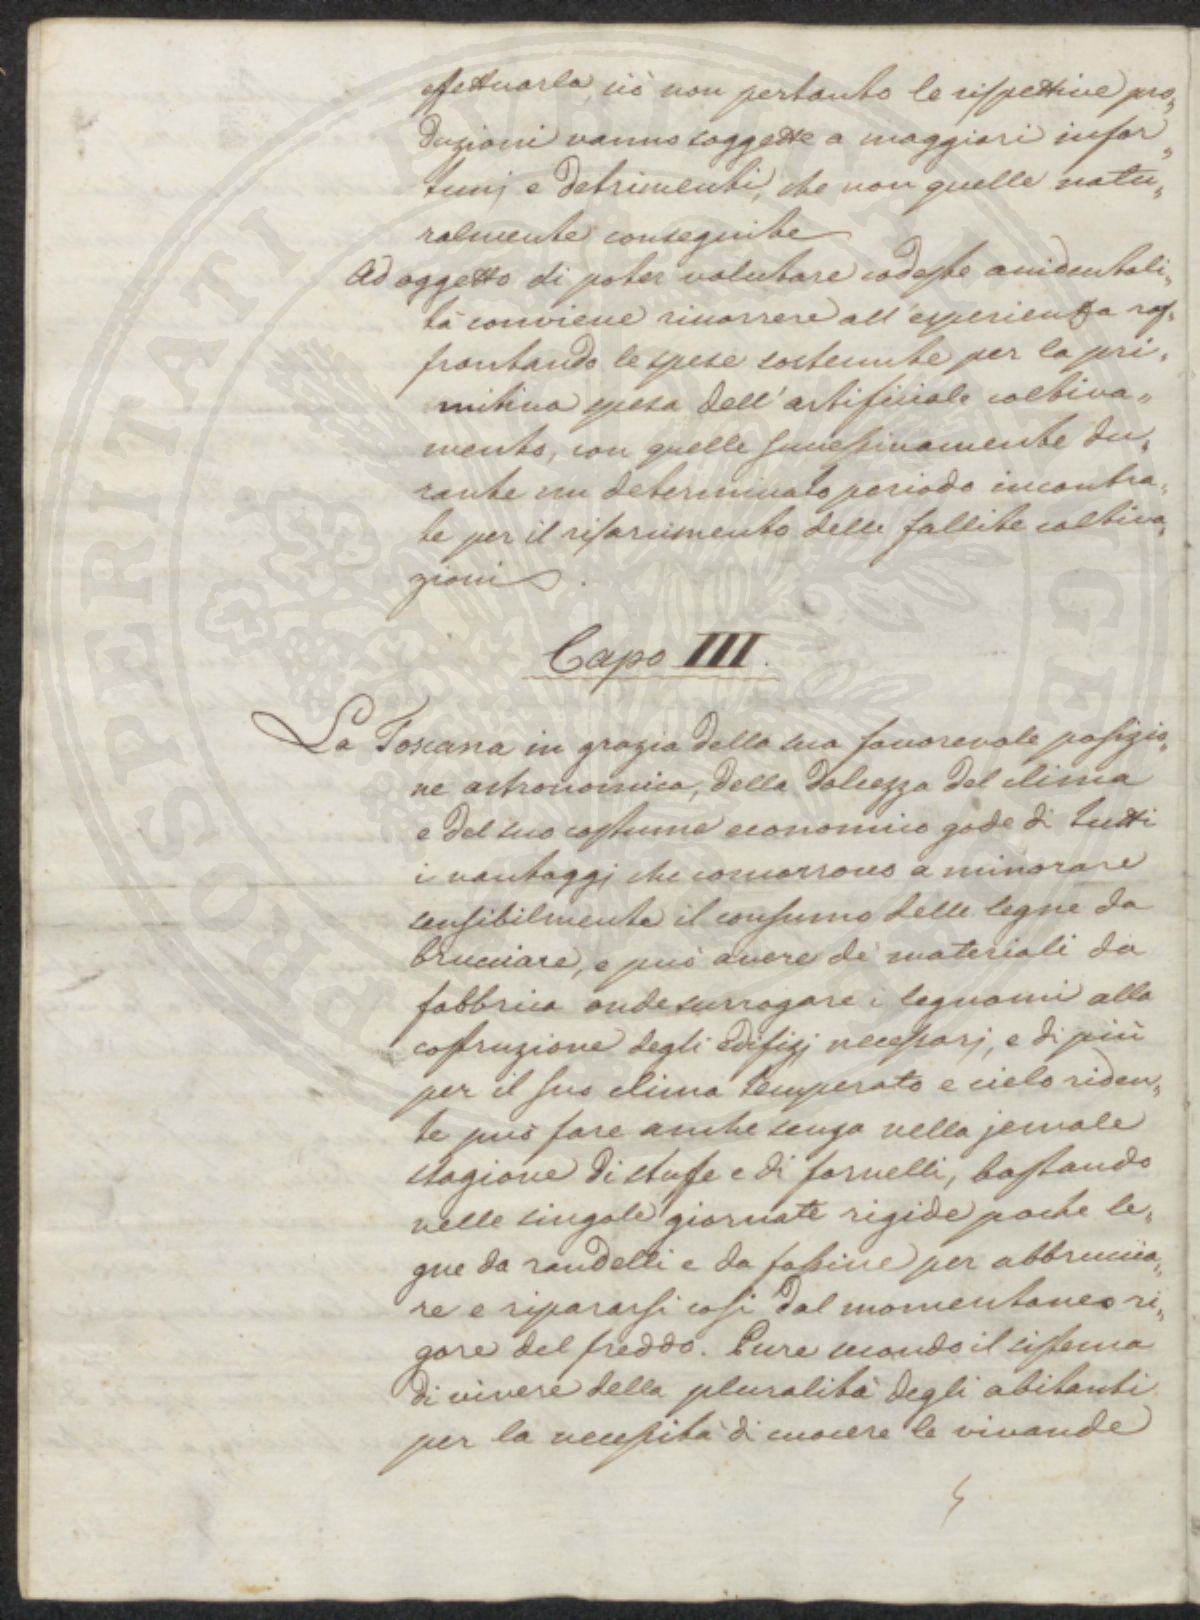 effettuarla, ciò non pertanto le rispettive pro„
duzioni vanno soggette a maggiori infor„
tunj e detrimenti, che non quelle natu„
ralmente conseguite
Ad oggetto di poter valutare codeste accidentali„
tà conviene ricorrere all'esperienza raf„
frontando le spese sostenute per la pri„
mitiva spesa dell'artificiale coltiva„
mento, con quelle successivamente du„
rante un determinato periodo incontra„
te per il risarcimento delle fallite coltiva„
zioni.
Capo III.
La Toscana in grazia della sua favorevole posizio„
ne astronomica, della dolcezza del clima
e del suo costume economico gode di tutti
i vantaggj che concorrono a minorare
sensibilmente il consumo delle legne da
bruciare, e può avere de' materiali da
fabbrica onde surrogare i legnami alla
costruzione degli edifizj necessarj, e di più
per il suo clima temperato e cielo riden„
te può fare anche senza nella jemale
stagione di stufe e di fornelli, bastando
nelle singole giornate rigide poche le„
gne da randelli e da fassine per abbruccia„
re e ripararsi così dal momentaneo ri„
gore del freddo. Pure secondo il sistema
di vivere della pluralità degli abitanti
per la necessità di cuocere le vivande
PROSPERITATI PUBLICAE